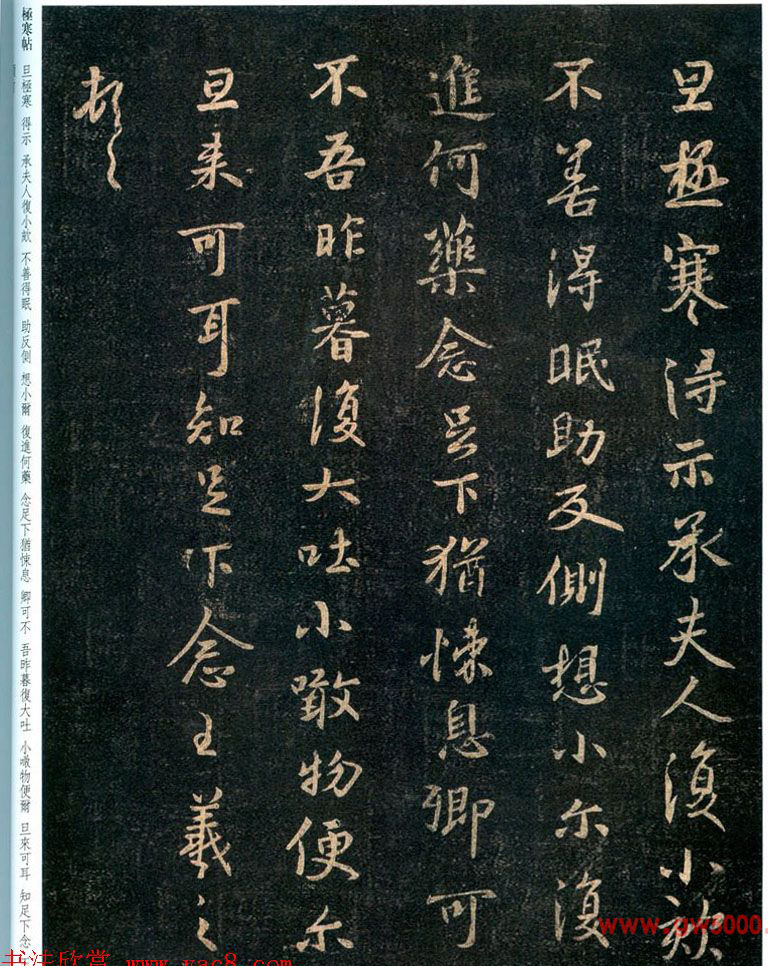 旦極寒得示承夫人復小欬
不善得眠助反側想小尔復
進何藥念足下猶悚息卿可
不吾昨暮復大吐小噉物便尔
旦来可耳知足下念王羲之
頓首
極寒帖 旦極寒 得示 承夫人復小欬 不善得眠 助反側 想小爾 復進何藥 念足下猶悚息 卿可不 吾昨暮復大吐 小噉物便爾 旦來可耳 知足下念
www.gw3000.
书法欣赏 www.yac8.com